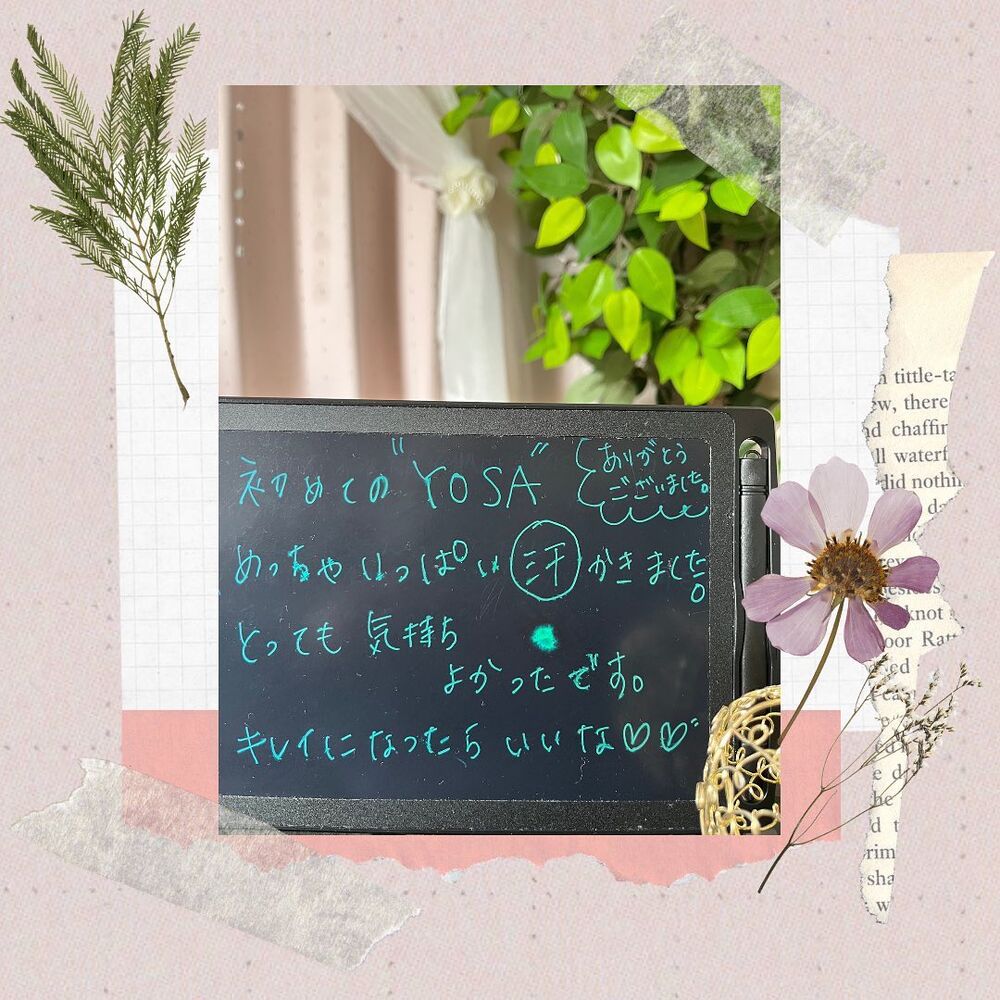 初めての "YOSA"
ありがとう
ございました。
めっちゃ いっぱい 汗 かきました。
とっても 気持ち
よかったです。
キレイに なったら いいな♡♡
tittle-ta
there
chaffin
waterf
did nothi
knot
oor Rat
he
sha
w